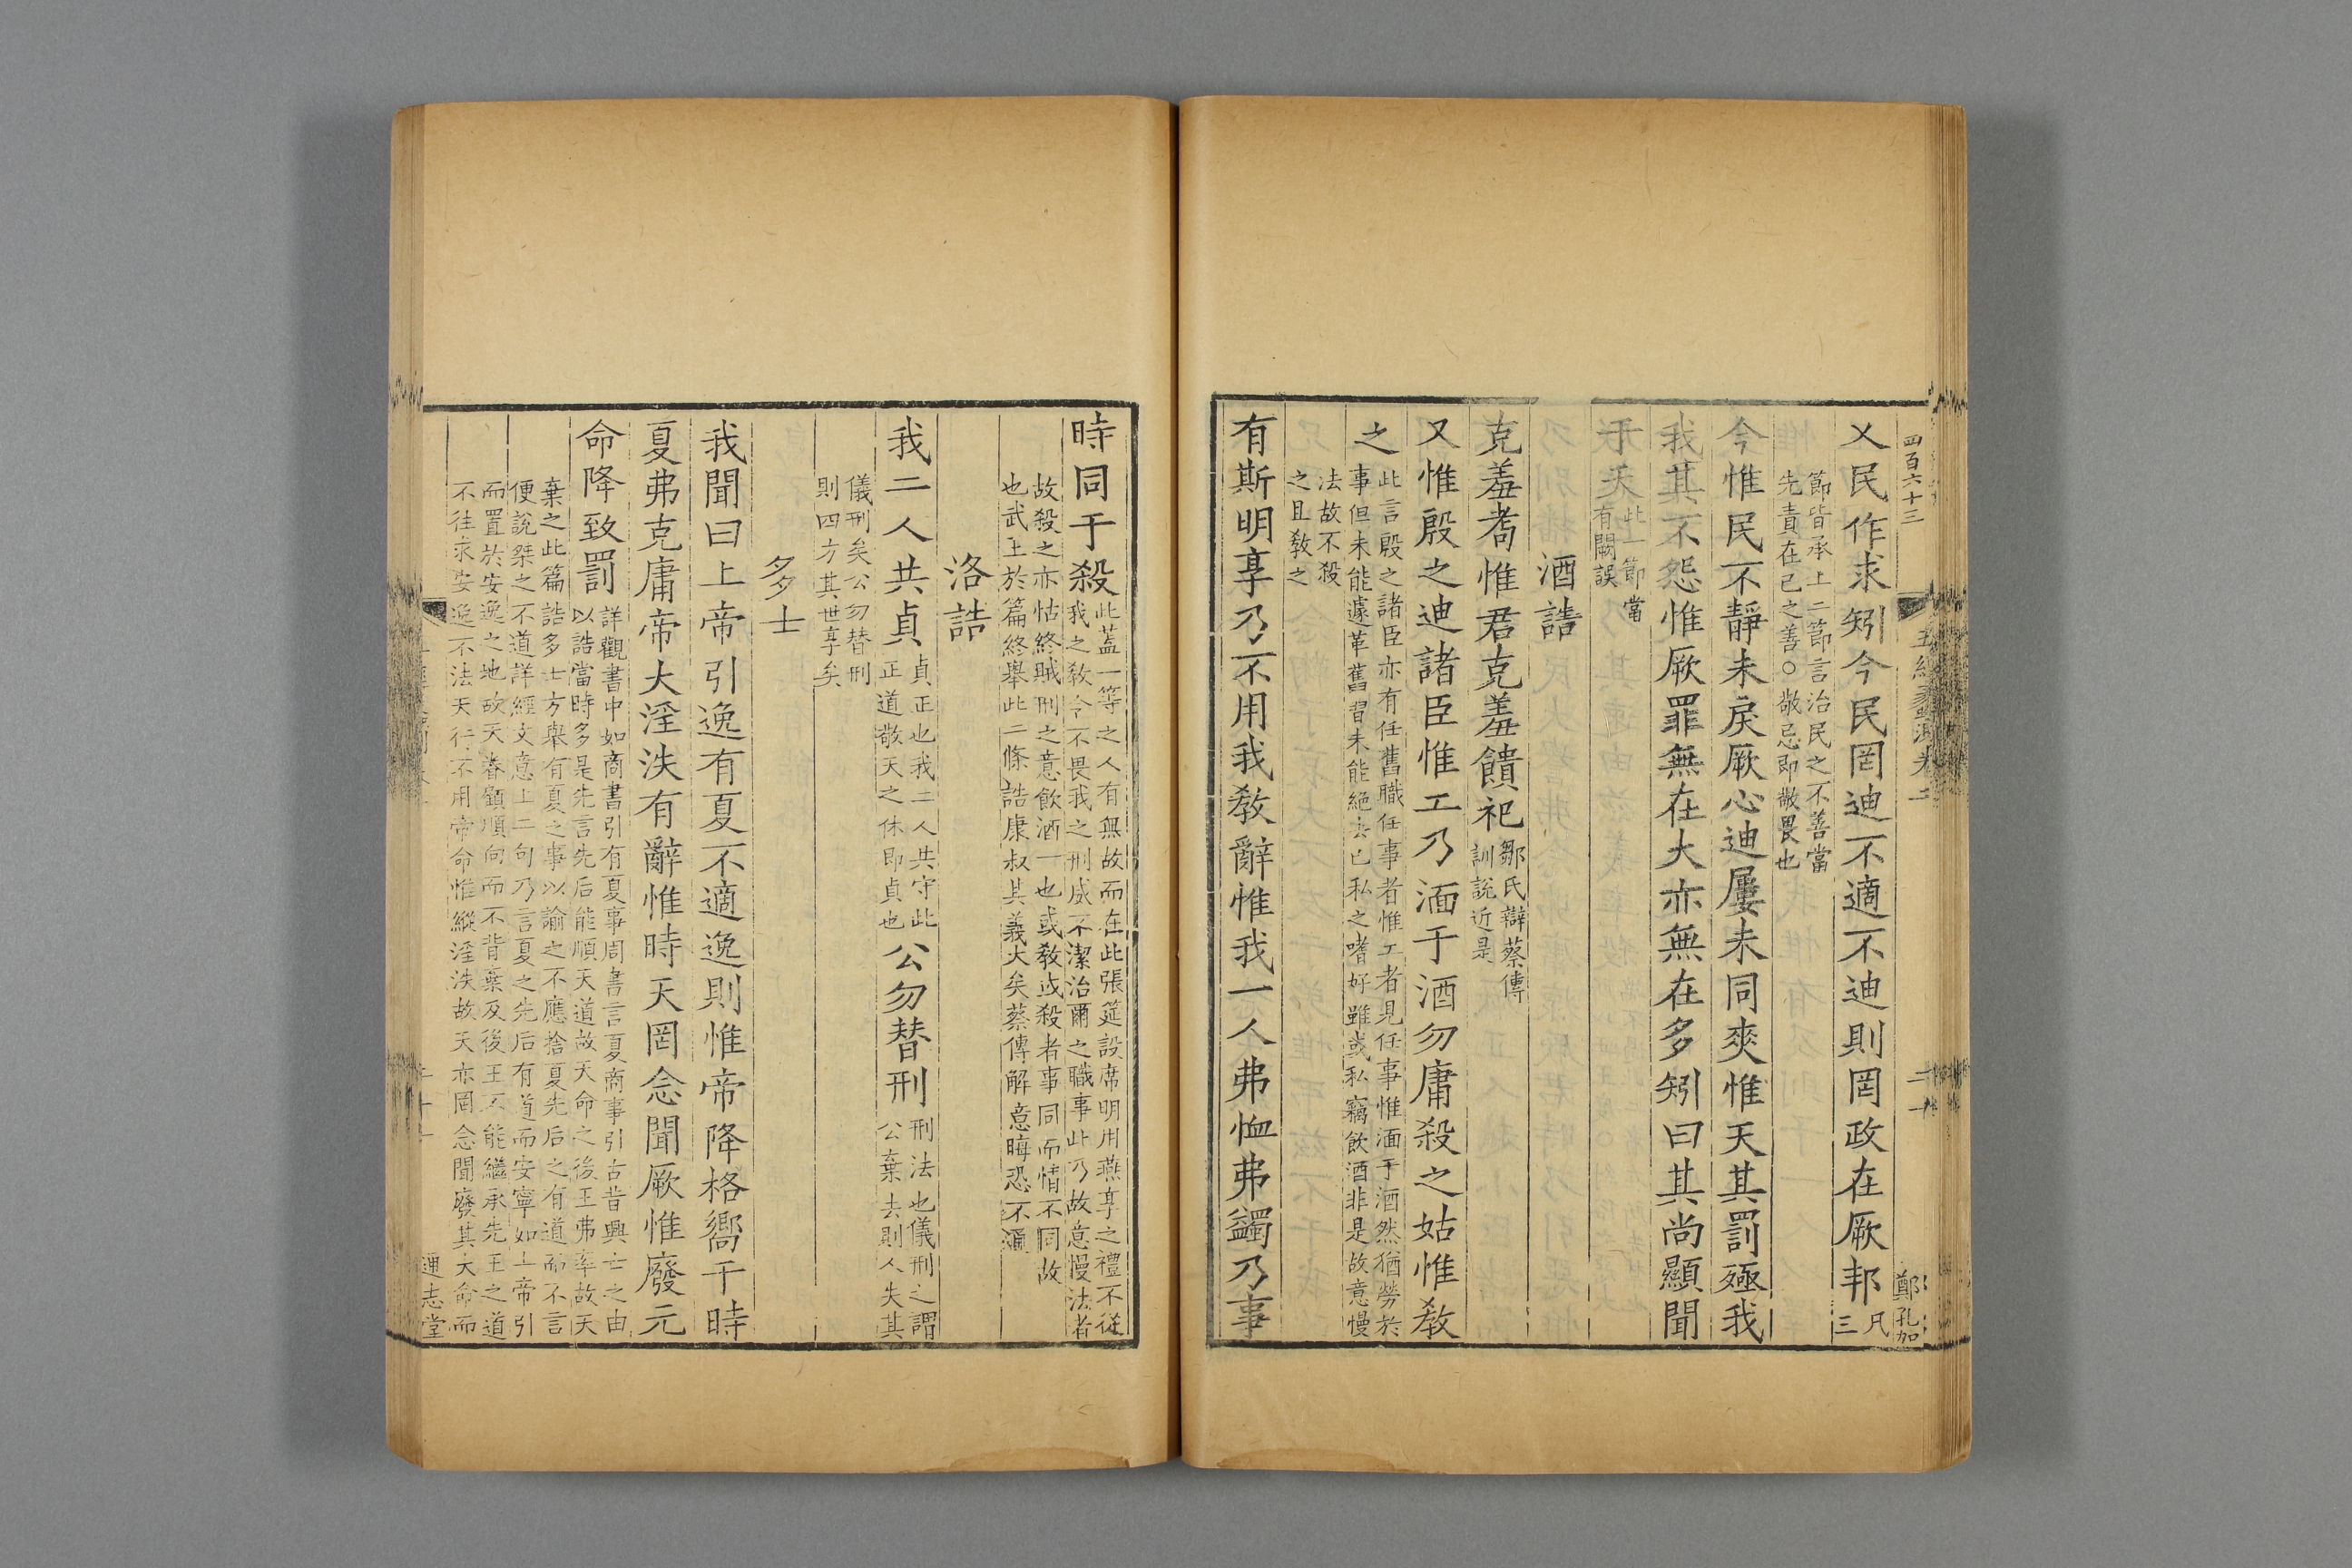 四百六十三
五經蠡測卷二
二十
鄭孔加
乂民作求矧今民罔迪不適不迪則罔政在厥邦凡三
節皆承上二節言治民之不善當
先責在已之善○敬忌即敬畏也
今惟民不靜未戾厥心迪屢未同爽惟天其罰殛我
我其不怨惟厥罪無在大亦無在多矧曰其尚顯聞
于天此一節當
有闕誤
酒誥
克羞耇惟君克羞饋祀鄒氏辯蔡傳
訓說近是
又惟殷之迪諸臣惟工乃湎于酒勿庸殺之姑惟敎
之此言殷之諸臣亦有任舊職任事者惟工者見任事惟湎于酒然猶勞於
事但未能遽革舊習未能絕去已私之嗜好雖或私竊飲酒非是故意慢
法故不殺
之且敎之
有斯明享乃不用我敎辭惟我一人弗恤弗蠲乃事
時同于殺此蓋一等之人有無故而在此張筵設席明用燕享之禮不從
我之敎令不畏我之刑威不潔治爾之職事此乃故意慢法者
故殺之亦怙終賊刑之意飲酒一也或敎或殺者事同而情不同故
也武王於篇終舉此二條誥康叔其義大矣蔡傳解意晦恐不通
洛誥
我二人共貞貞正也我二人共守此
正道敬天之休即貞也公勿替刑刑法也儀刑之謂
公棄去則人失其
儀刑矣公勿替刑
則四方其世享矣
多士
我聞曰上帝引逸有夏不適逸則惟帝降格嚮于時
夏弗克庸帝大淫泆有辭惟時天罔念聞厥惟廢元
命降致罰詳觀書中如商書引有夏事周書言夏商事引古昔興亡之由
以誥當時多是先言先后能順天道故天命之後王弗率故天
棄之此篇誥多士方舉有夏之事以諭之不應捨夏先后之有道而不言
便說桀之不道詳經文意上二句乃言夏之先后有道而安寧如上帝引
而置於安逸之地故天眷顧順向而不背棄及後王不能繼承先王之道
不往求安逸不法天行不用帝命惟縱淫泆故天亦罔念聞廢其大命而
通志堂